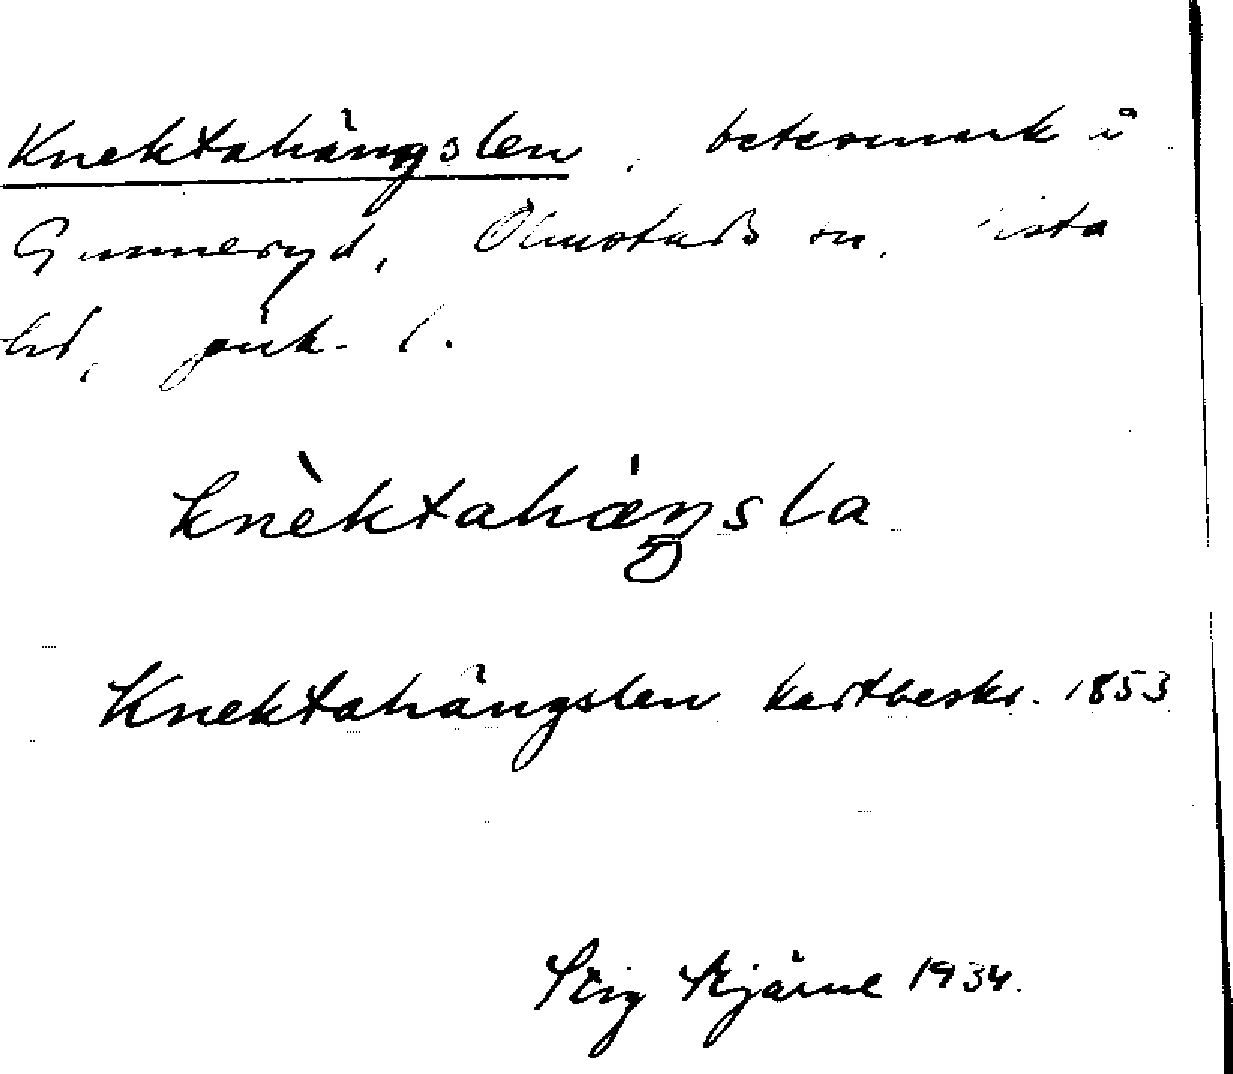 Knektahängslen, betesmark i
Gunneryd, Ölmstads sn, Vista
hd, Jönk. l.
knèktahäŋsla
Knektahängslen kartbeskr. 1853
Stig Stjärne 1934.